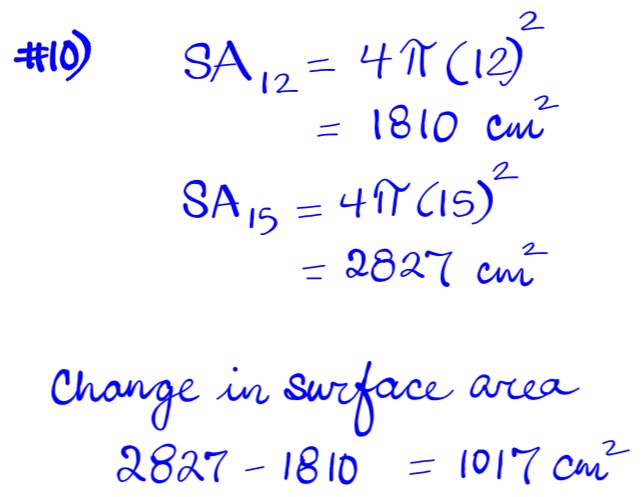 #10) SA₁₂ = 4π(12)²
= 1810 cm²
SA₁₅ = 4π(15)²
= 2827 cm²
Change in surface area
2827 - 1810 = 1017 cm²